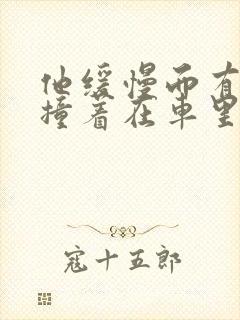 他缓慢而有
撞着在车里
寇十五郎